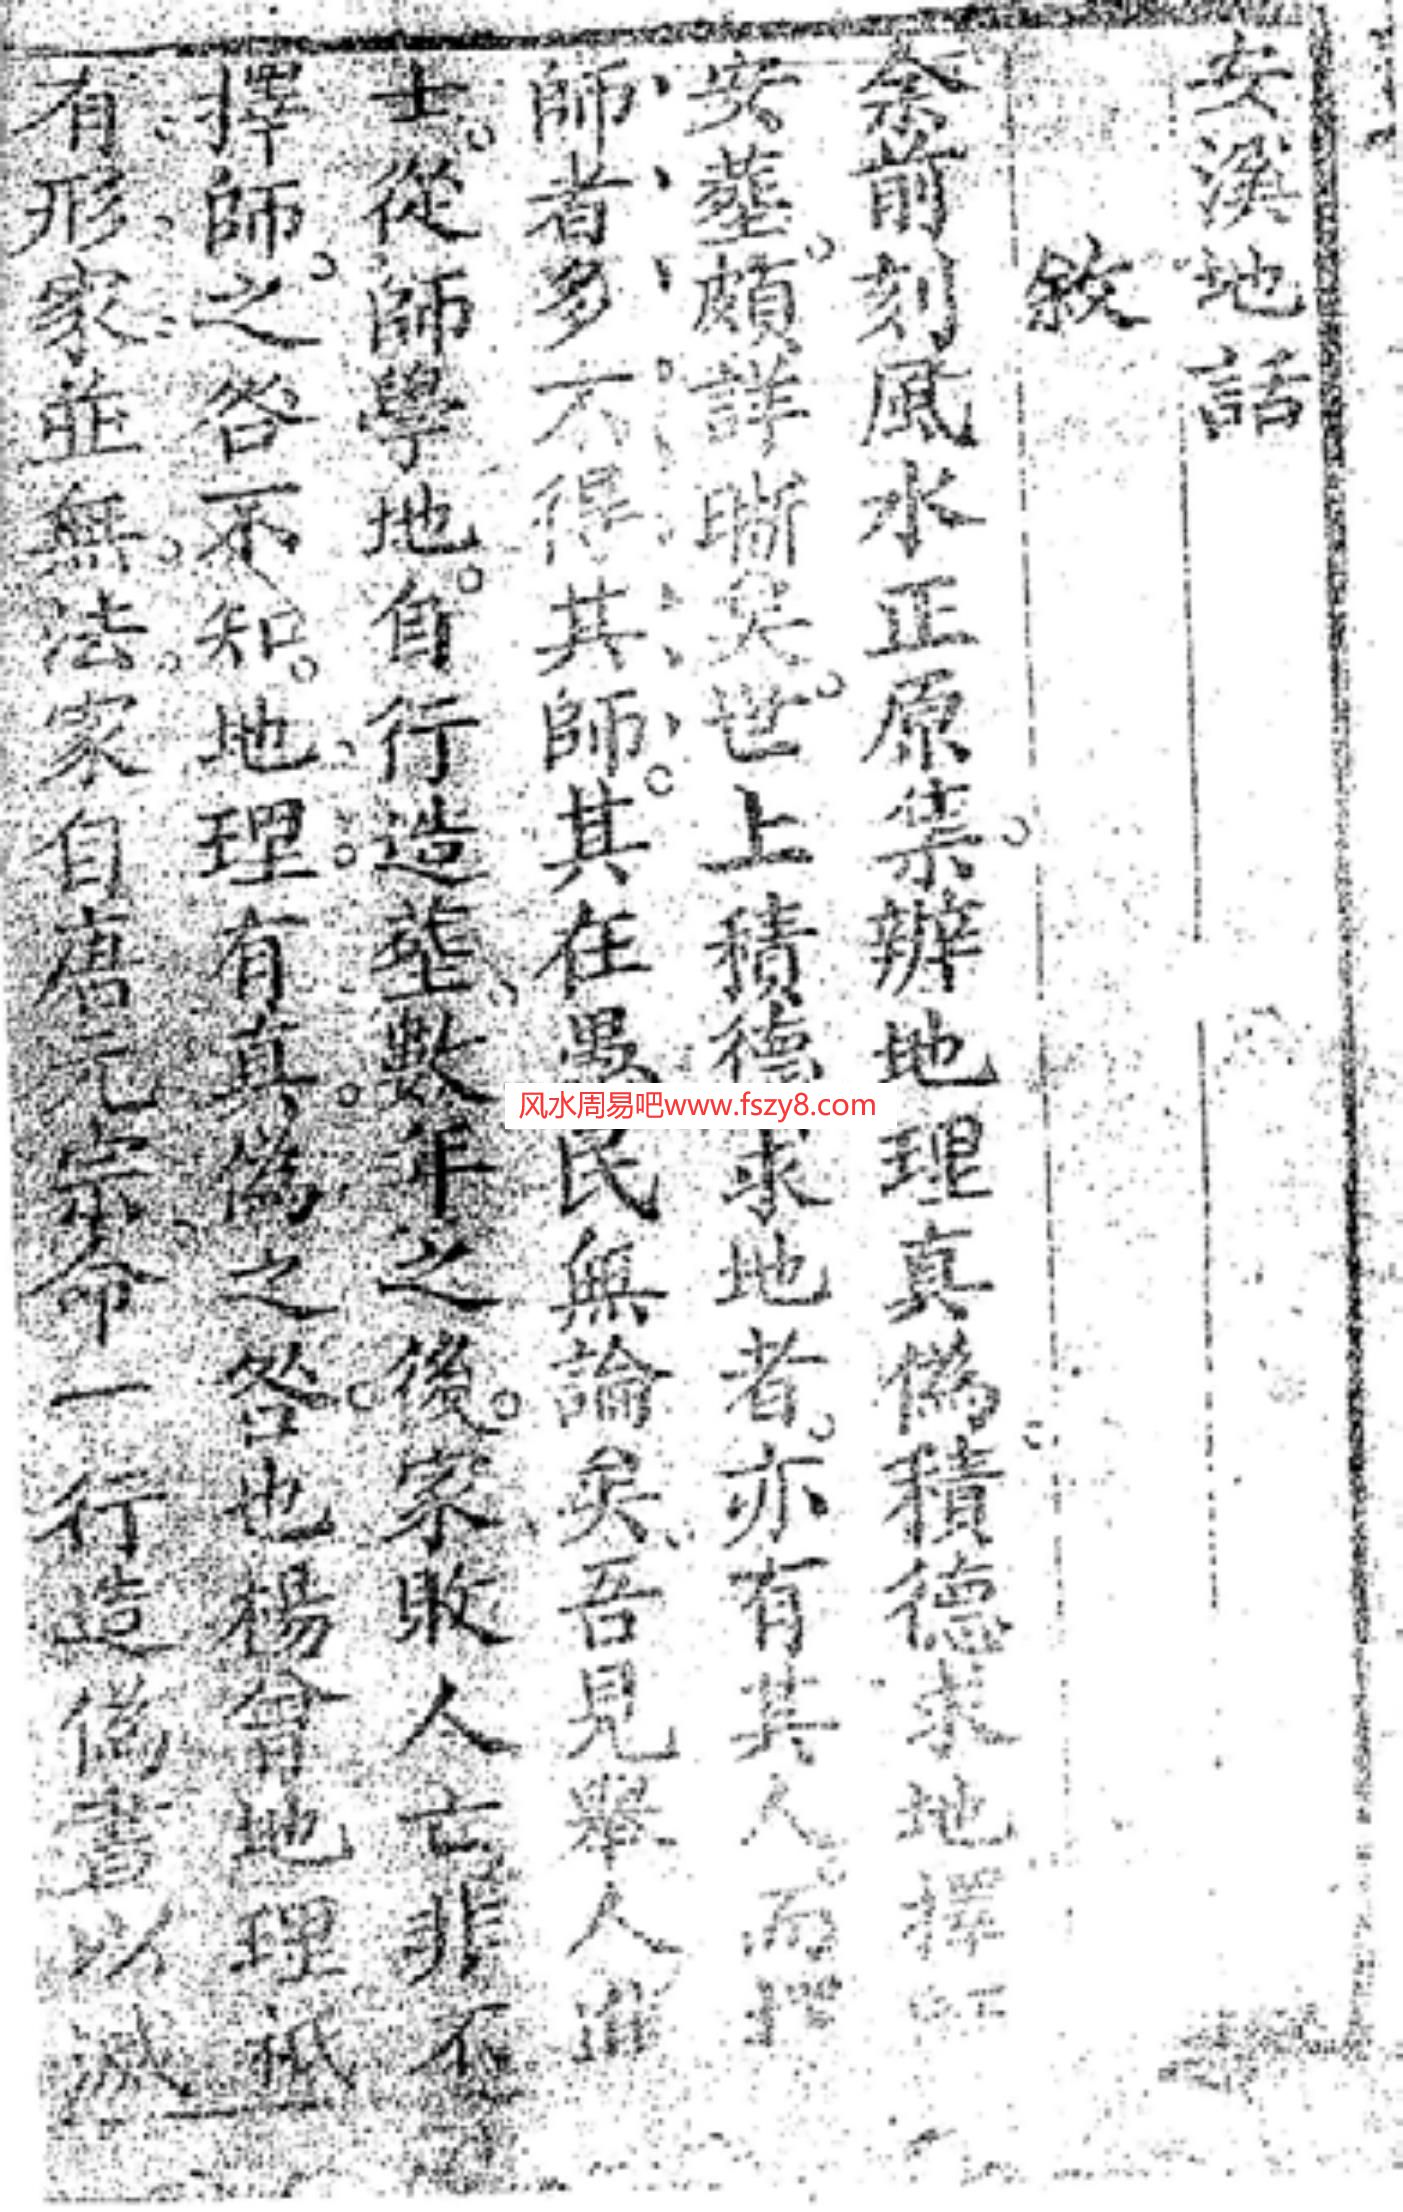 安溪地話
敘
余前刻風水正原集辨地理真僞積德求地擇師
安葬頗詳晰矣世上積德求地者亦有其人而擇
師者多不得其師其在愚民無論矣吾見舉人進
士從師學地自行造葬數年之後家敗人亡非不
擇師之咎不知地理有真僞之咎也楊曾地理祗
有形家並無法家自唐元宗命一行造僞書以滅
风水周易吧www.fszy8.com